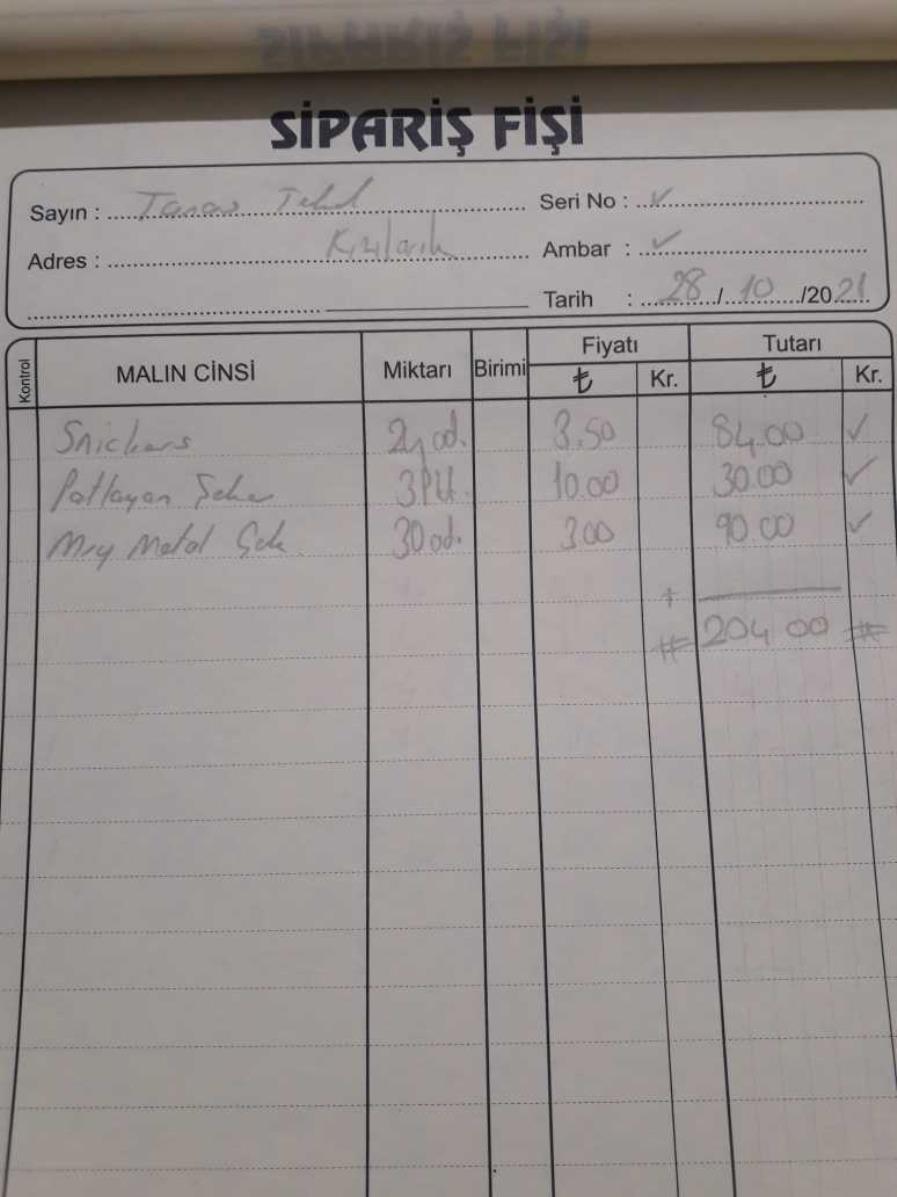 SİPARİŞ FİŞİ
Sayın : Seri No :
Adres : Kızılarık Ambar :
Tarih : 28/10/2021
Kontrol MALIN CİNSİ Miktarı Birimi Fiyatı Tutarı
₺ Kr. ₺ Kr.
Snickers 24 ad. 3.50 84.00 ✓
Patlayan Şeker 3 Pkt. 10.00 30.00 ✓
Metal 30 ad. 3.00 90.00 ✓
+
# 204 00 #